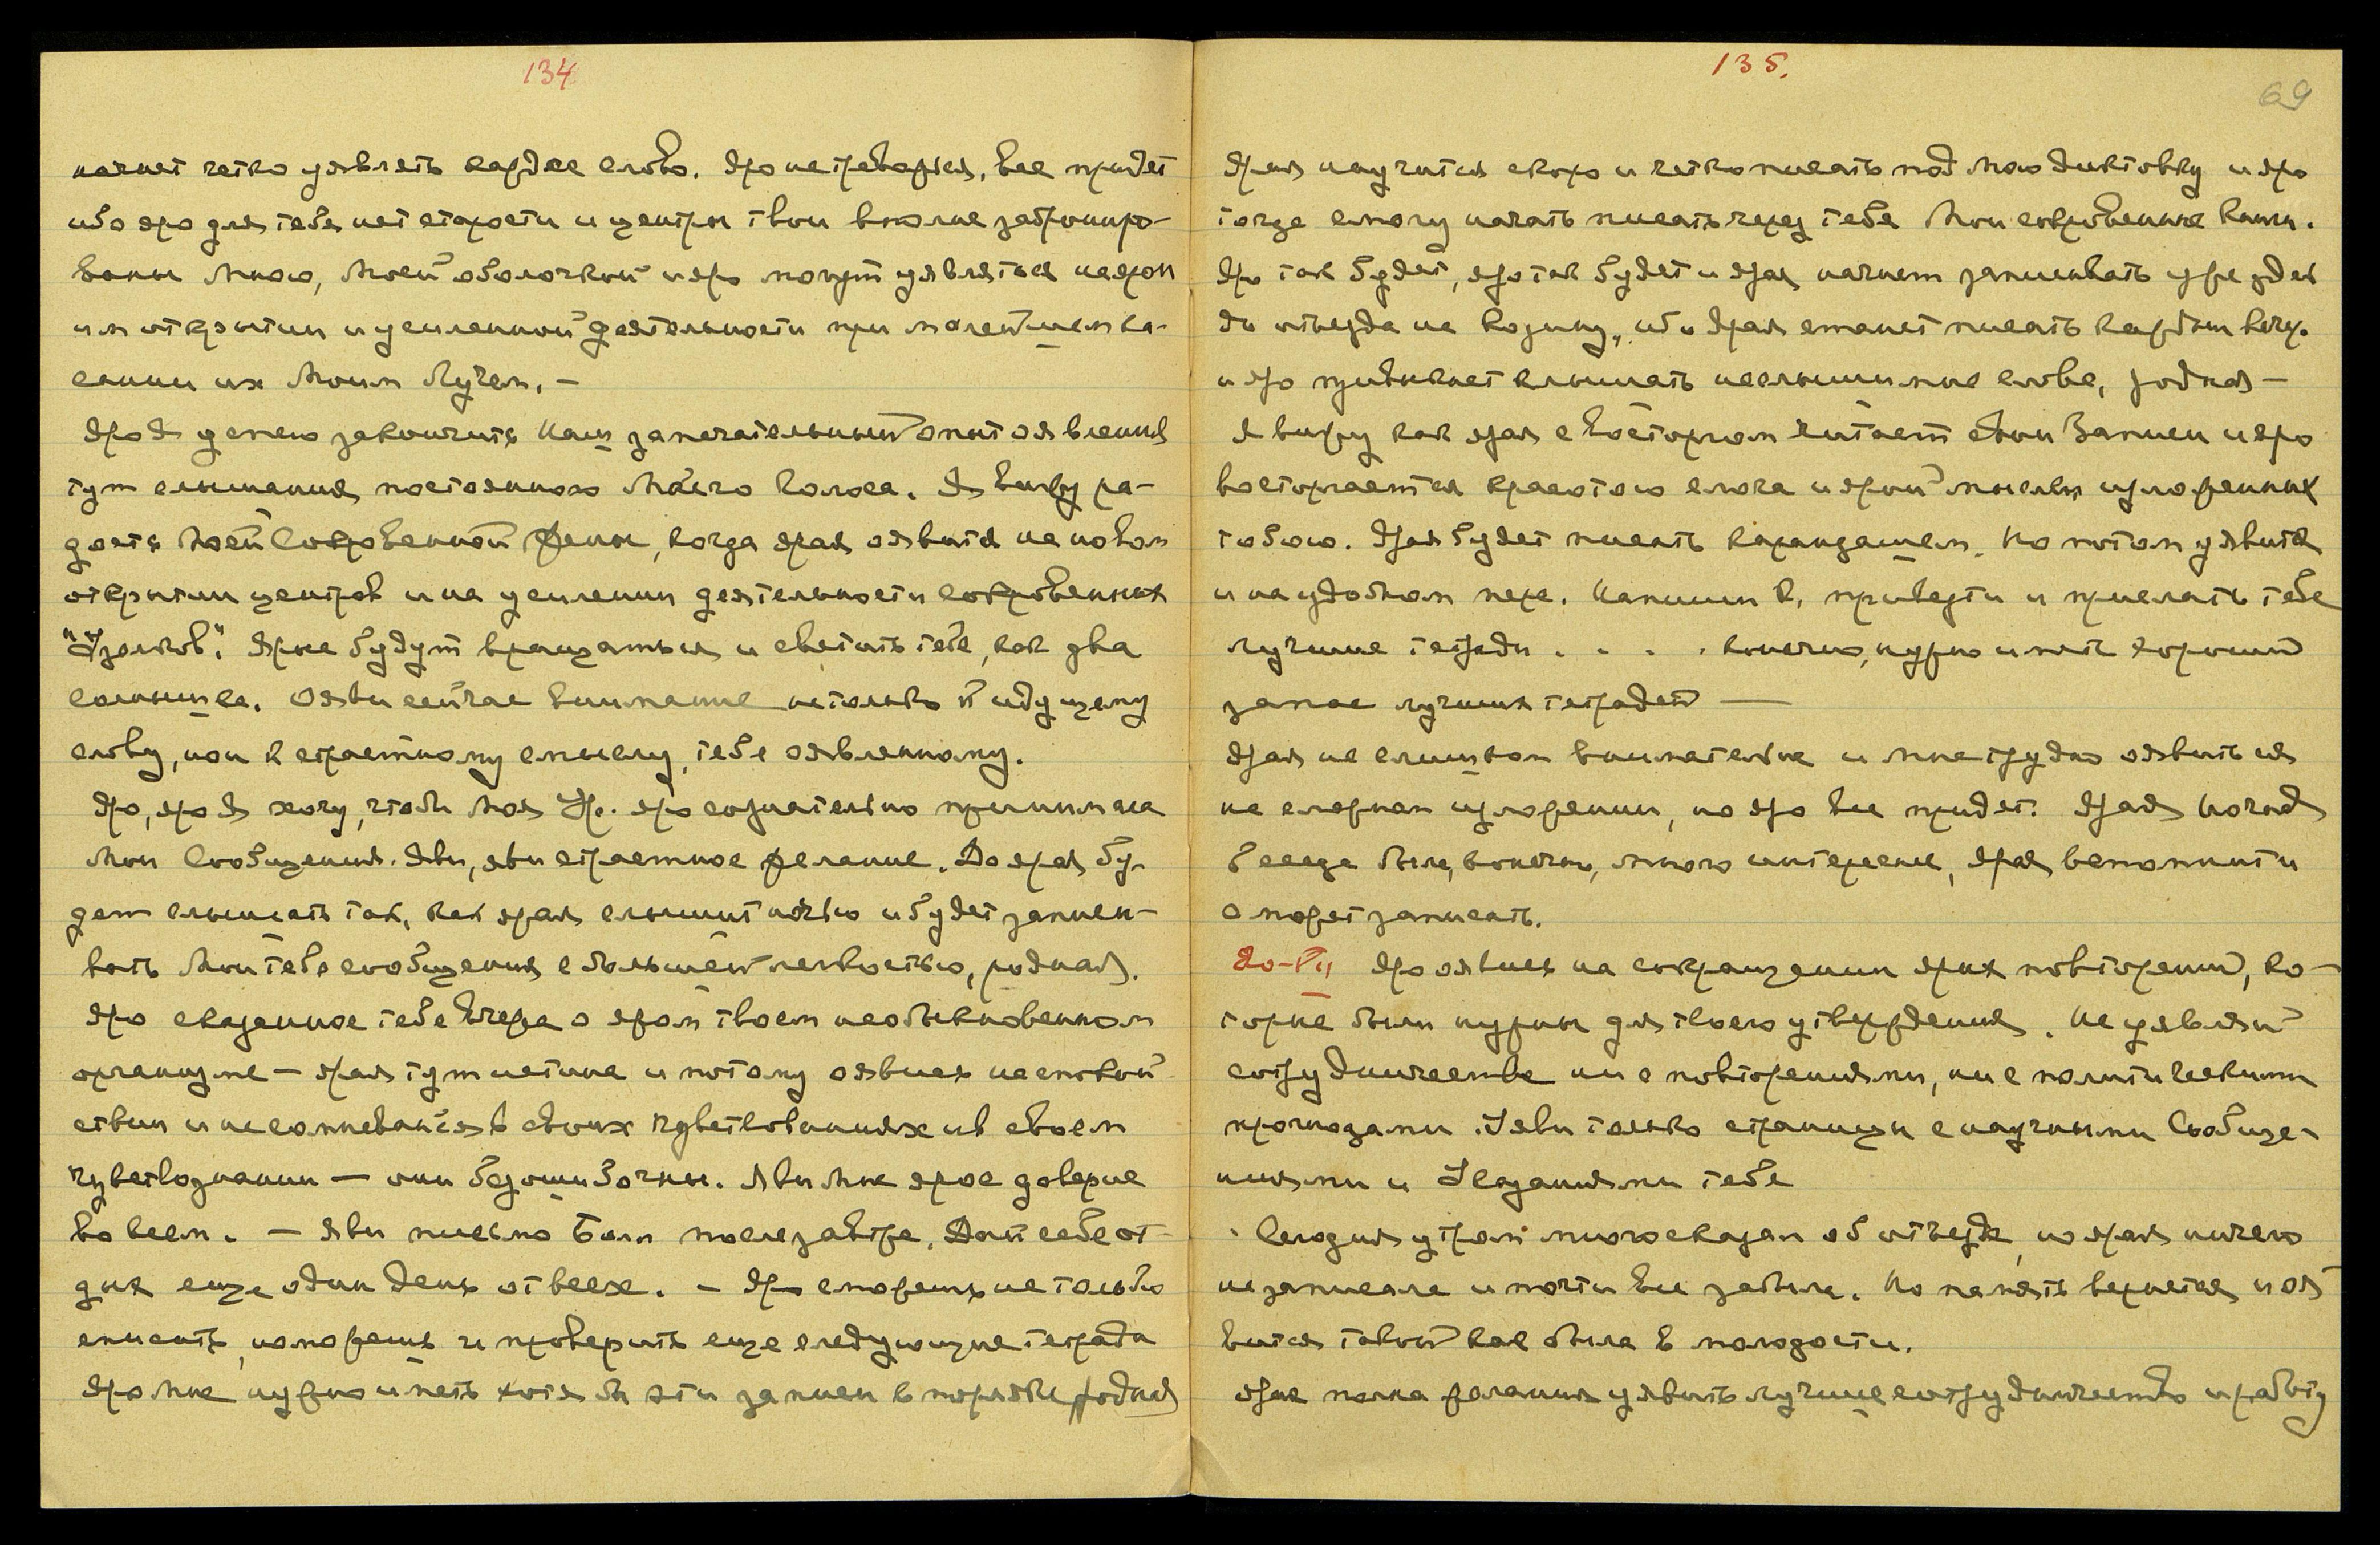 134
начнет четко уявлять каждое слово. Яро не тревожься, все придет
ибо яро для тебя нет старости и центры твои вполне заброниро-
ваны Мною, Моей оболочкой и яро могут уявляться на яром
им открытии и усиленной деятельности при малейшем ка-
сании их Моим Лучем. —
Яро Я успею закончить Наш замечательный опыт оявления
тут слышания постоянного Моего Голоса. Я вижу ра-
дость Моей Сокровенной Жены, когда ярая оявится на новом
открытии центров и на усилении деятельности сокровенных
"Узелков". Ярые будут вращаться и светить тебе, как два
солнышка. Ояви сейчас внимание не только к идущему
слову, но и к страстному смыслу, тебе оявленному.
Яро, яро Я хочу, чтобы Моя Ур. яро сознательно принимала
Мои Сообщения. Яви, яви страстное желание. Да ярая бу-
дет слышать так, как ярая слышит ночью и будет записы-
вать Мои тебе сообщения с большей легкостью, родная.
Яро сказанное тебе вчера о яром твоем необыкновенном
организме — ярая тут истина и потому оявись на спокой-
ствии и не сомневайся в своих чувствованиях и в своем
чувствознании — они безошибочны. Яви Мне ярое доверие
во всем. — Яви письмо Белл послезавтра. Дай себе от-
дых еще один день от всех. — Яро сможешь не только
списать, но можешь и проверить еще следующие тетради
Яро Мне нужно иметь хотя бы эти записи в порядке, родная
135.
69
Ярая научится скоро и четко писать под Мою диктовку и яро
тогда смогу начать писать через тебя Мои сокровенные Книги.
Яро так будет, яро так будет и ярая начнет записывать уже здесь
до отъезда на Родину, ибо ярая станет писать каждый вечер
и яро привыкнет слышать неслышимые слова, родная —
Я вижу как ярая с восторгом читает свои Записи и яро
восторгается красотою слога и ярой мыслью изложенных
тобою. Ярая будет писать карандашем. Но потом уявится
и на удобном пере. Напиши К. привезти и прислать тебе
лучшие тетради . . . . конечно, нужно иметь хороший
запас лучших тетрадей —
Ярая не слишком внимательна и Мне трудно оявиться
на сложном изложении, но яро все придет. Ярая Ночная
беседа была, конечно, много интереснее, ярая вспомнит и
сможет записать.
20-VII Яро оявись на сокращении ярых повторений, ко-
торые были нужны для твоего утверждения. Не уявляй
сотрудничества ни с повторениями, ни с политическими
прогнозами. Уяви только страницы с научными Сообще-
ниями и Указаниями тебе
Сегодня утром много сказал об отъезде, но ярая ничего
не записала и почти все забыла. Но память вернется и оя-
вится такой как была в молодости.
Ярая полна желания уявить лучшее сотрудничество и работу